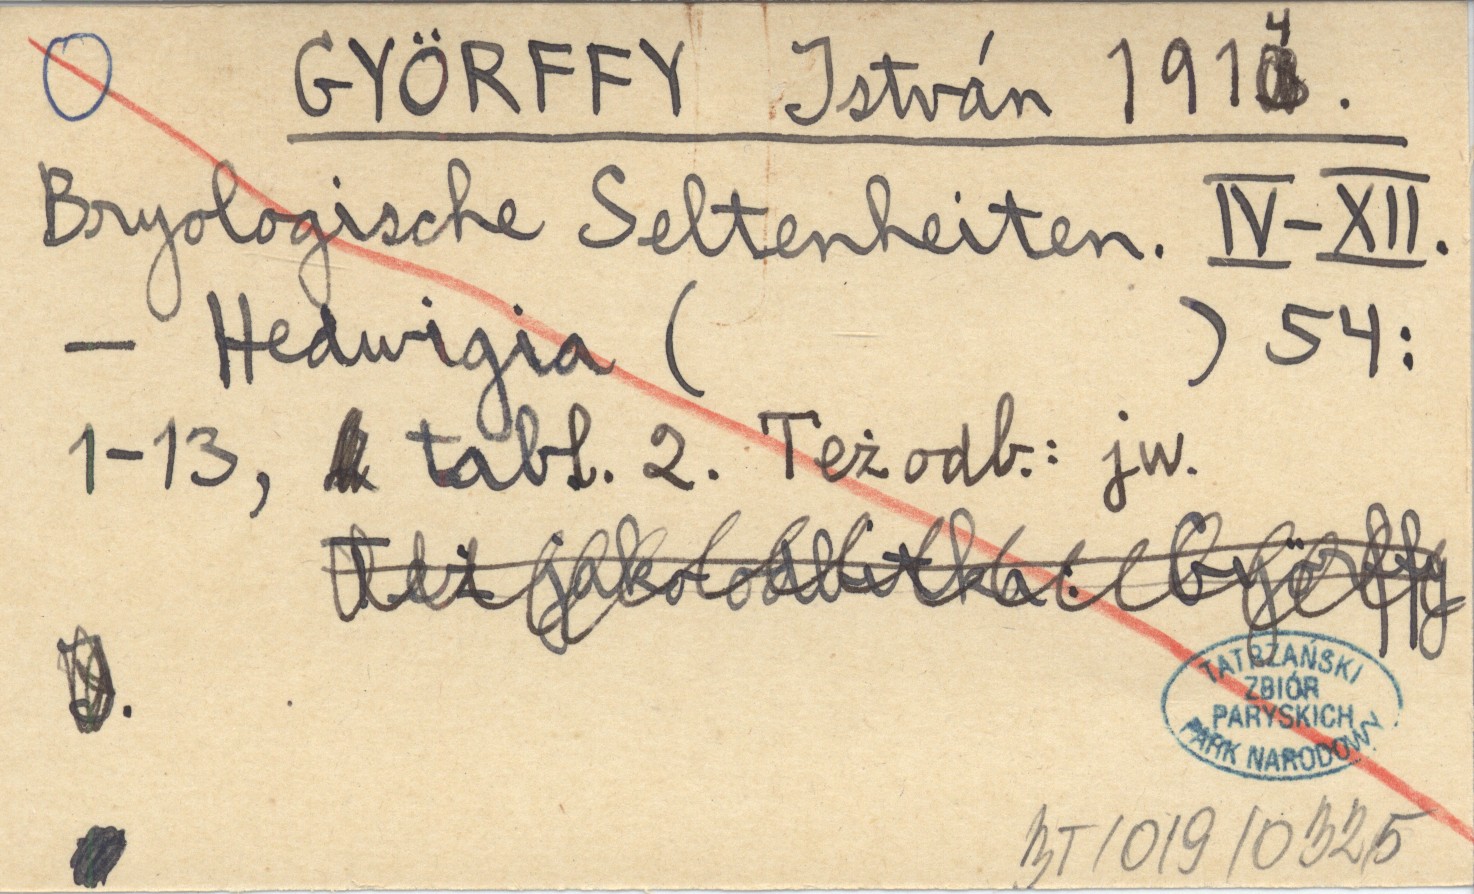 GYÖRFFY István 1914.
Bryologische Seltenheiten. IV-XII.
— Hedwigia ( ) 54:
1-13, tabl. 2. Też odb.: jw.
Też jako odbitka: Györffy
TATRZAŃSKI
ZBIÓR
PARYSKICH
PARK NARODOWY
BT/019/0325